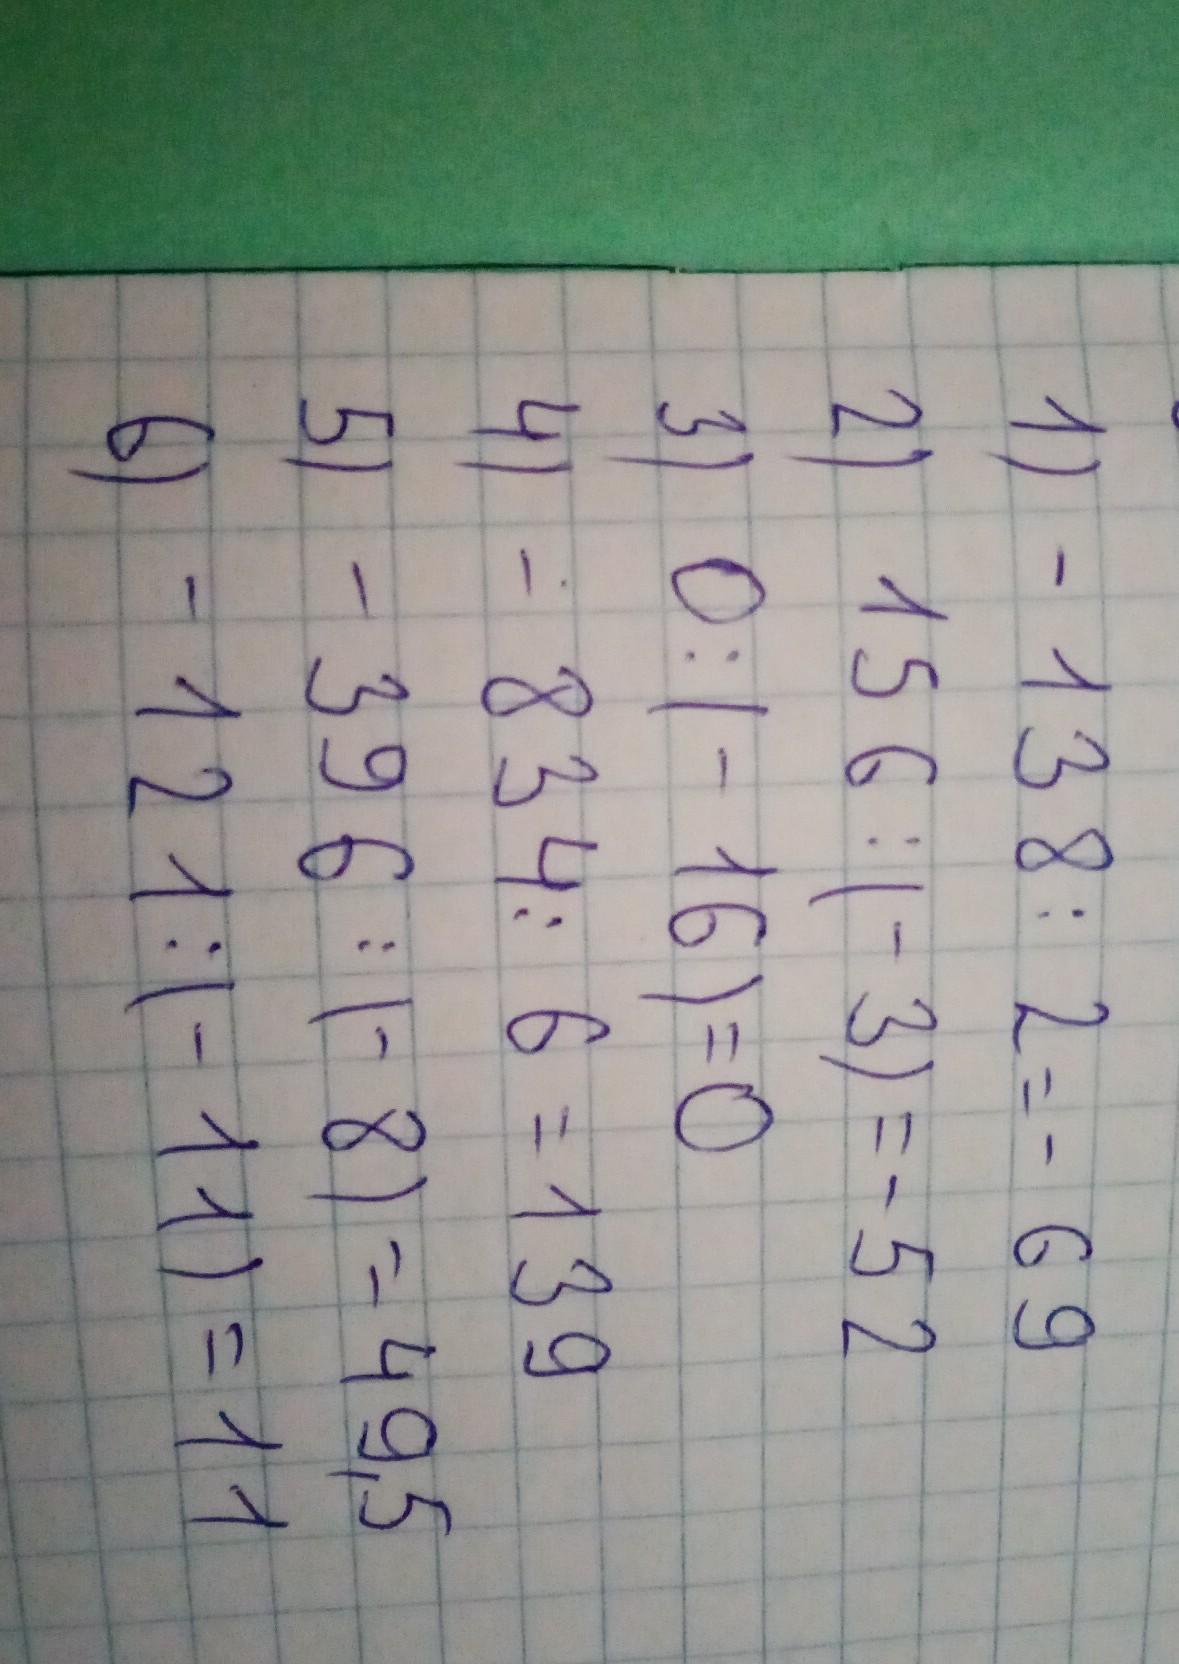 1) -138: 2=-69
2) 156:(-3)=-52
3) 0:(-16)=0
4) -834: 6=139
5) -396:(-8)=49,5
6) -121:(-11)=11